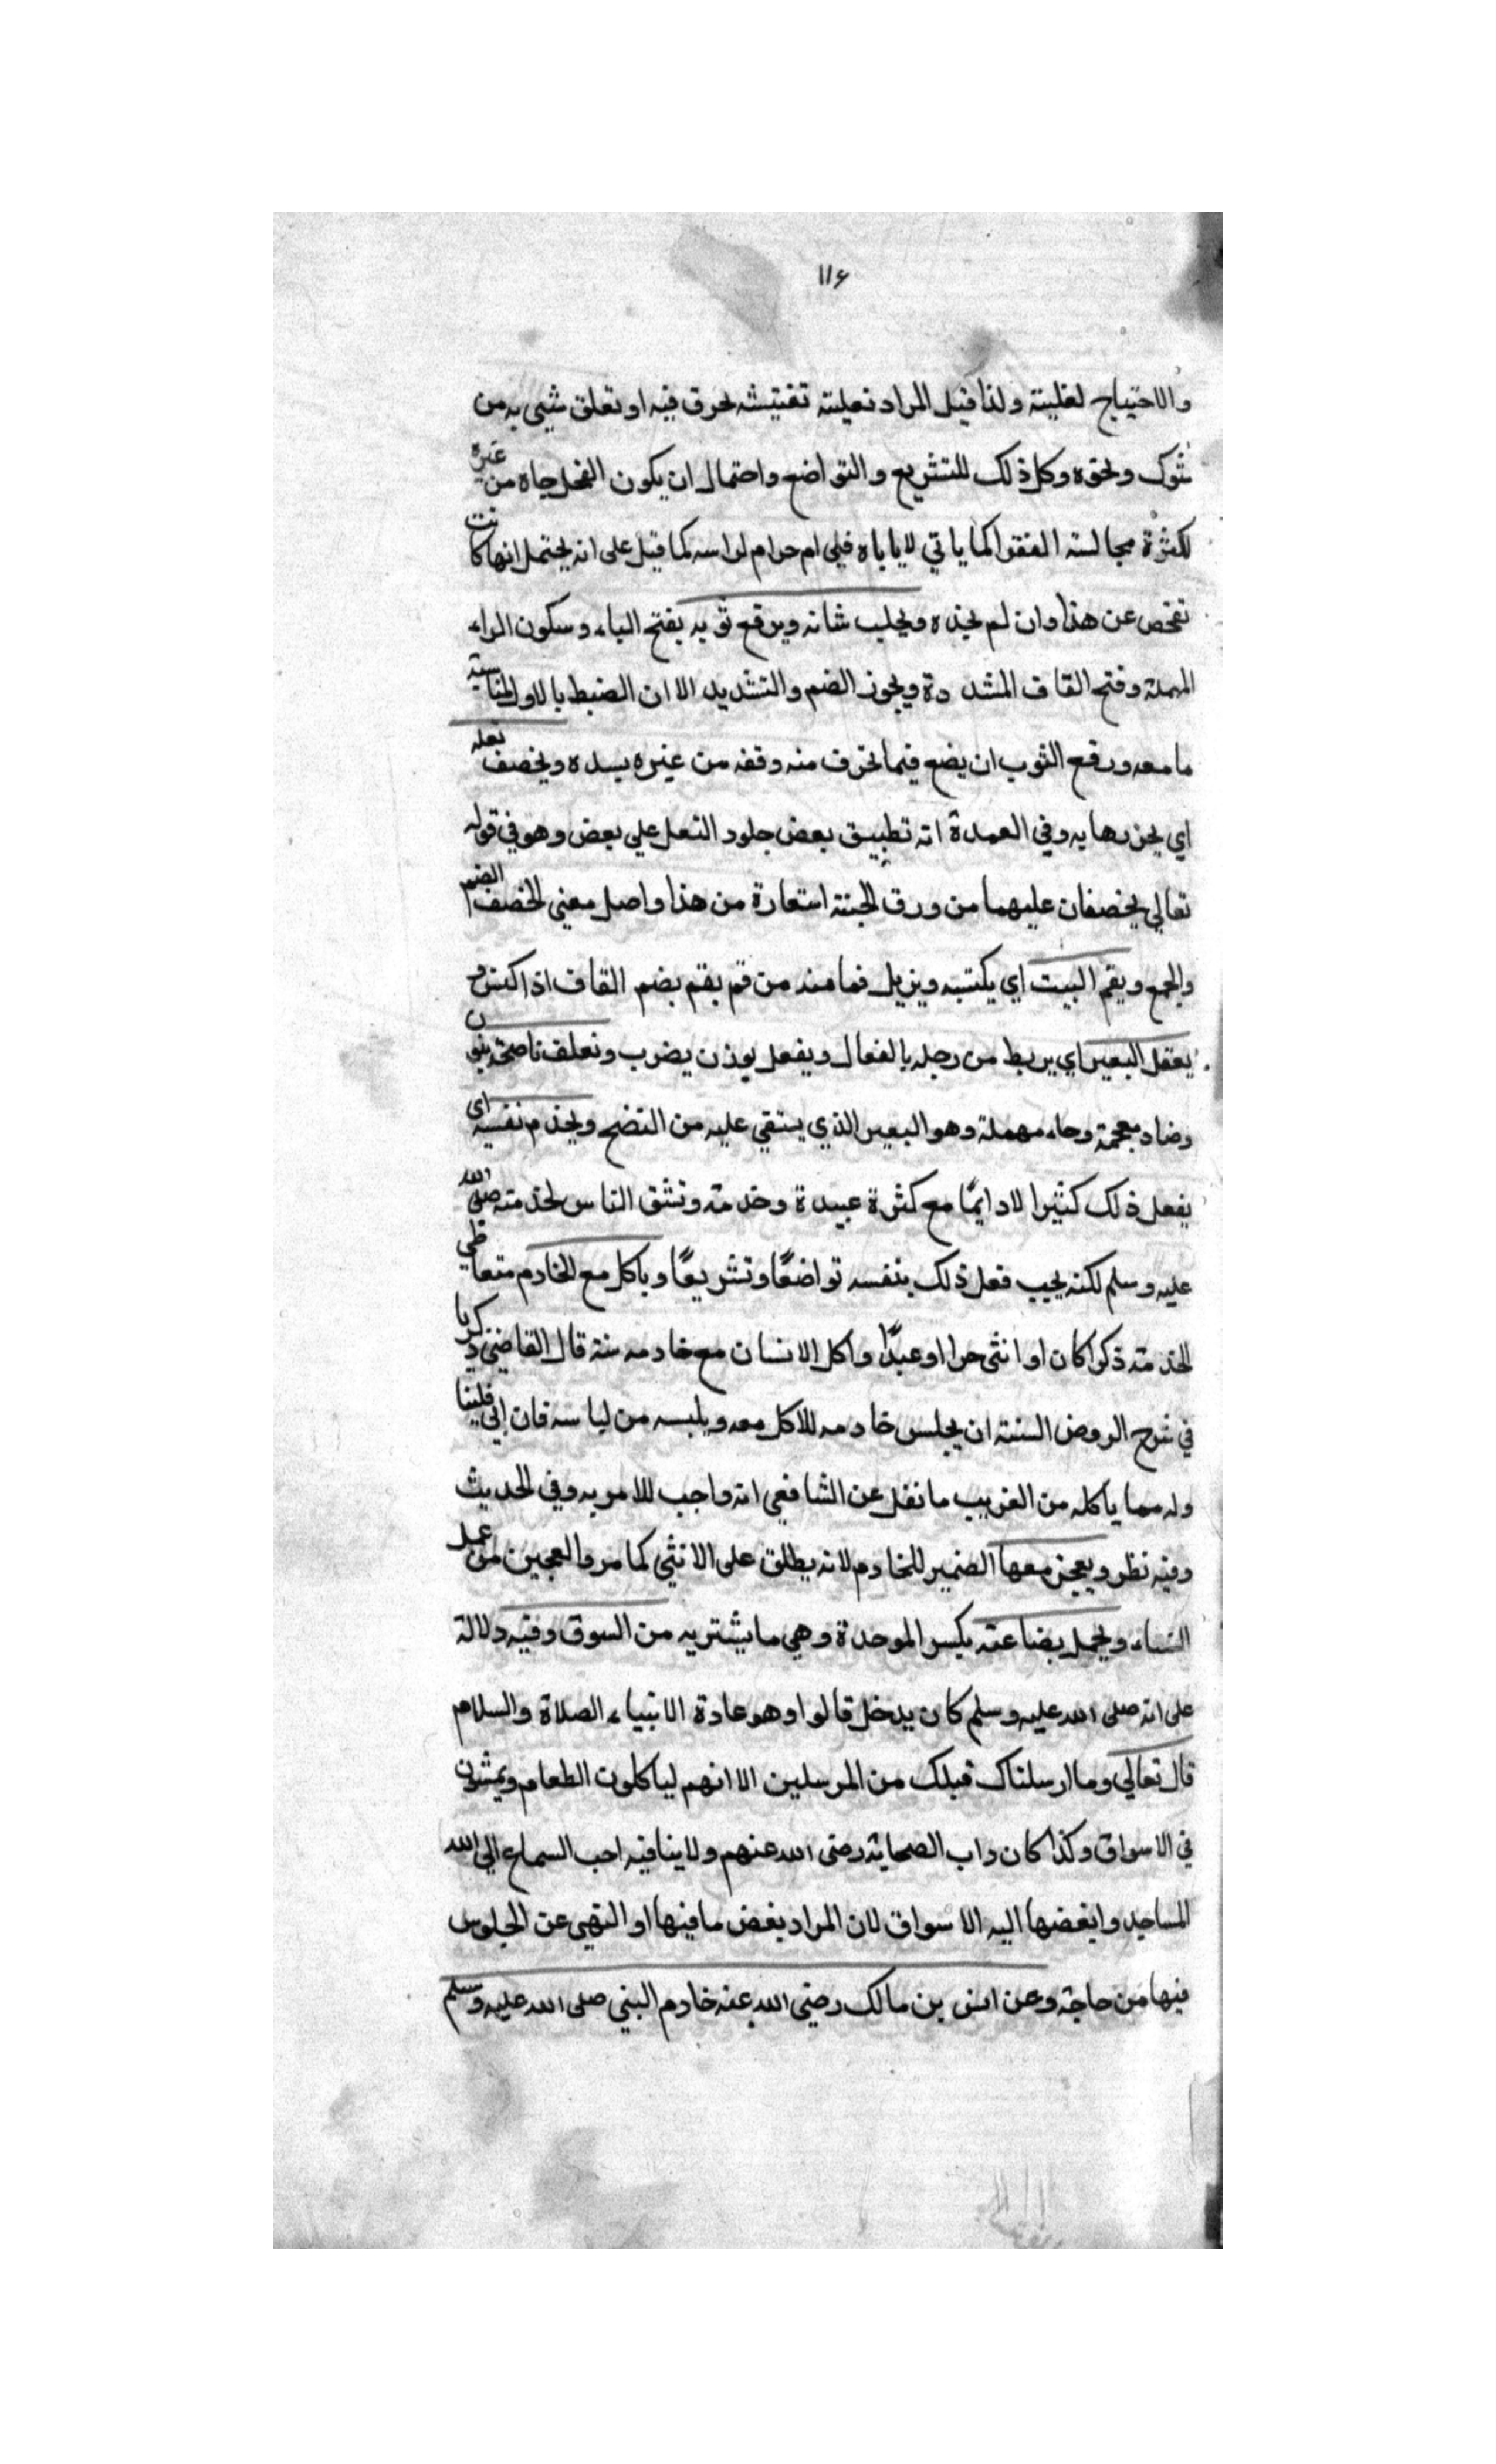 ١١٤
والاحتياج لغليته ولذا قيل المراد نعليته تفتيشه لحرق فيه او تعلق شيى به من
شوك ونحوه وكل ذلك للتشريع والتواضع واحتمال ان يكون القمل جاه من غيره
لكثرة مجالسته الفقرا كما ياتي لاياباه فلى ام حرام لراسه كما قيل على انه يحتمل انها كانت
تفحص عن هذا وان لم تجده ويحلب شاته ويرقع ثوبه بفتح الياء وسكون الراء
المهملة وفتح القاف المشددة ويجوز الضم والتشديد الا ان الضبط بالاول لمناسبة
ما معه ورقع الثوب ان يضع فيما تخرف منه وقفه من غيره يسده ويخصف نعله
اي يخرزها به وفي العمدة انه تطبيق بعض جلود النعل علي بعض وهو في قوله
تعالي يخصفان عليهما من ورق الجنة استعارة من هذا واصل معني الخصف الضم
والجمع ويقم البيت اي يكتسه ويزيل قمامته من قم يقم بضم القاف اذا كنس و
يعقل البعير اي يربط من رجله بالفعال ويفعل بوزن يضرب ونعلف ناضحه بنون
وضاد معجمة وحاء مهملة وهو البعير الذي يستقي عليه من النضح ويخدم نفسه اى
يفعل ذلك كثيرا لا دايمًا مع كثرة عبيدة وخدمة وتشق الناس لخدمته صلى الله
عليه وسلم لكنه يحب فعل ذلك بنفسه تواضعًا وتشريعًا وياكل مع الخادم متعاطي
الخدمته ذكرا كان او انثى حرا او عبدًا واكل الانسان مع خادمه سنة قال القاضي زكريا
في شرح الروض السنته ان يجلس خادمه للاكل معه ويلبسه من لباسه فان ابي فلينا
وله مما ياكله من الغريب ما نقل عن الشافعي انه واجب للامر به وفي الحديث
وفيه نظر ويعجن معها الضمير للخادم لانه يطلق على الانثي كما مر والعجين من عمل
النساء ويحمل بضاعته بكسر الموحدة وهي ما يشتريه من السوق وفيه دلالة
على انه صلى الله عليه وسلم كان يدخل قالوا وهو عادة الانبياء الصلاة والسلام
قال تعالي وما ارسلناك قبلك من المرسلين الا انهم لياكلون الطعام ويمشون
في الاسواق وكذا كان داب الصحابة رضى الله عنهم ولاينافيه احب السماع الي الله
المساجد وابغضها اليه الاسواق لان المراد بغض ما فيها او النهى عن الجلوس
فيها من حاجة وعن انس بن مالك رضي الله عنه خادم النبي صلى الله عليه وسلم